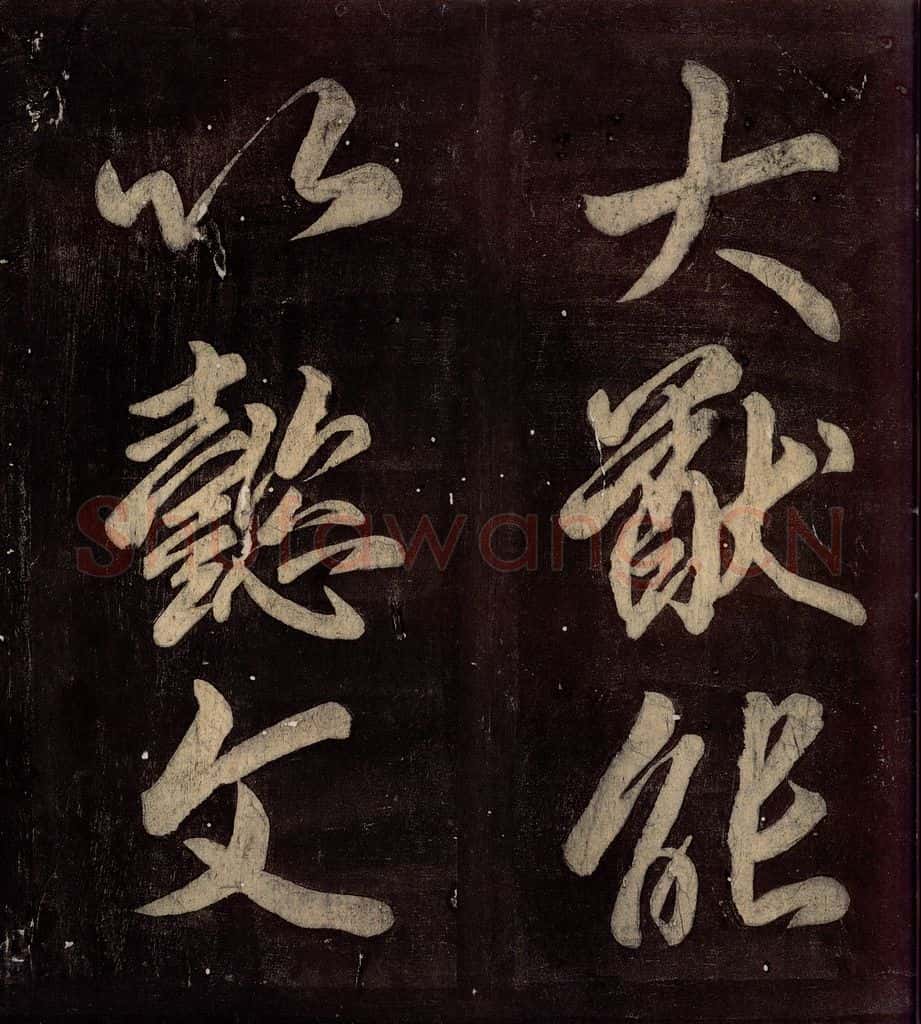 大猷能
以懿文
Shufawang.CN